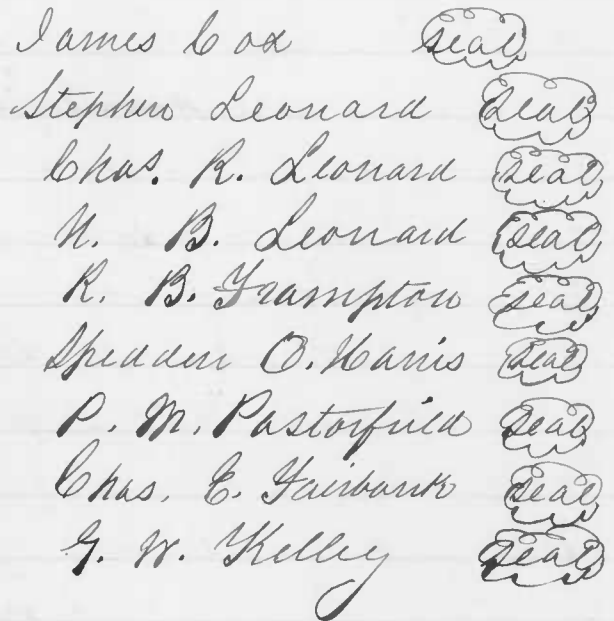 James Cox seal
Stephen Leonard seal
Chas. R. Leonard seal
N. B. Leonard seal
R. B. Frampton seal
Spedden O. Harris seal
P. M. Pastorfield seal
Chas. E. Fairbank seal
G. W. Kelley seal